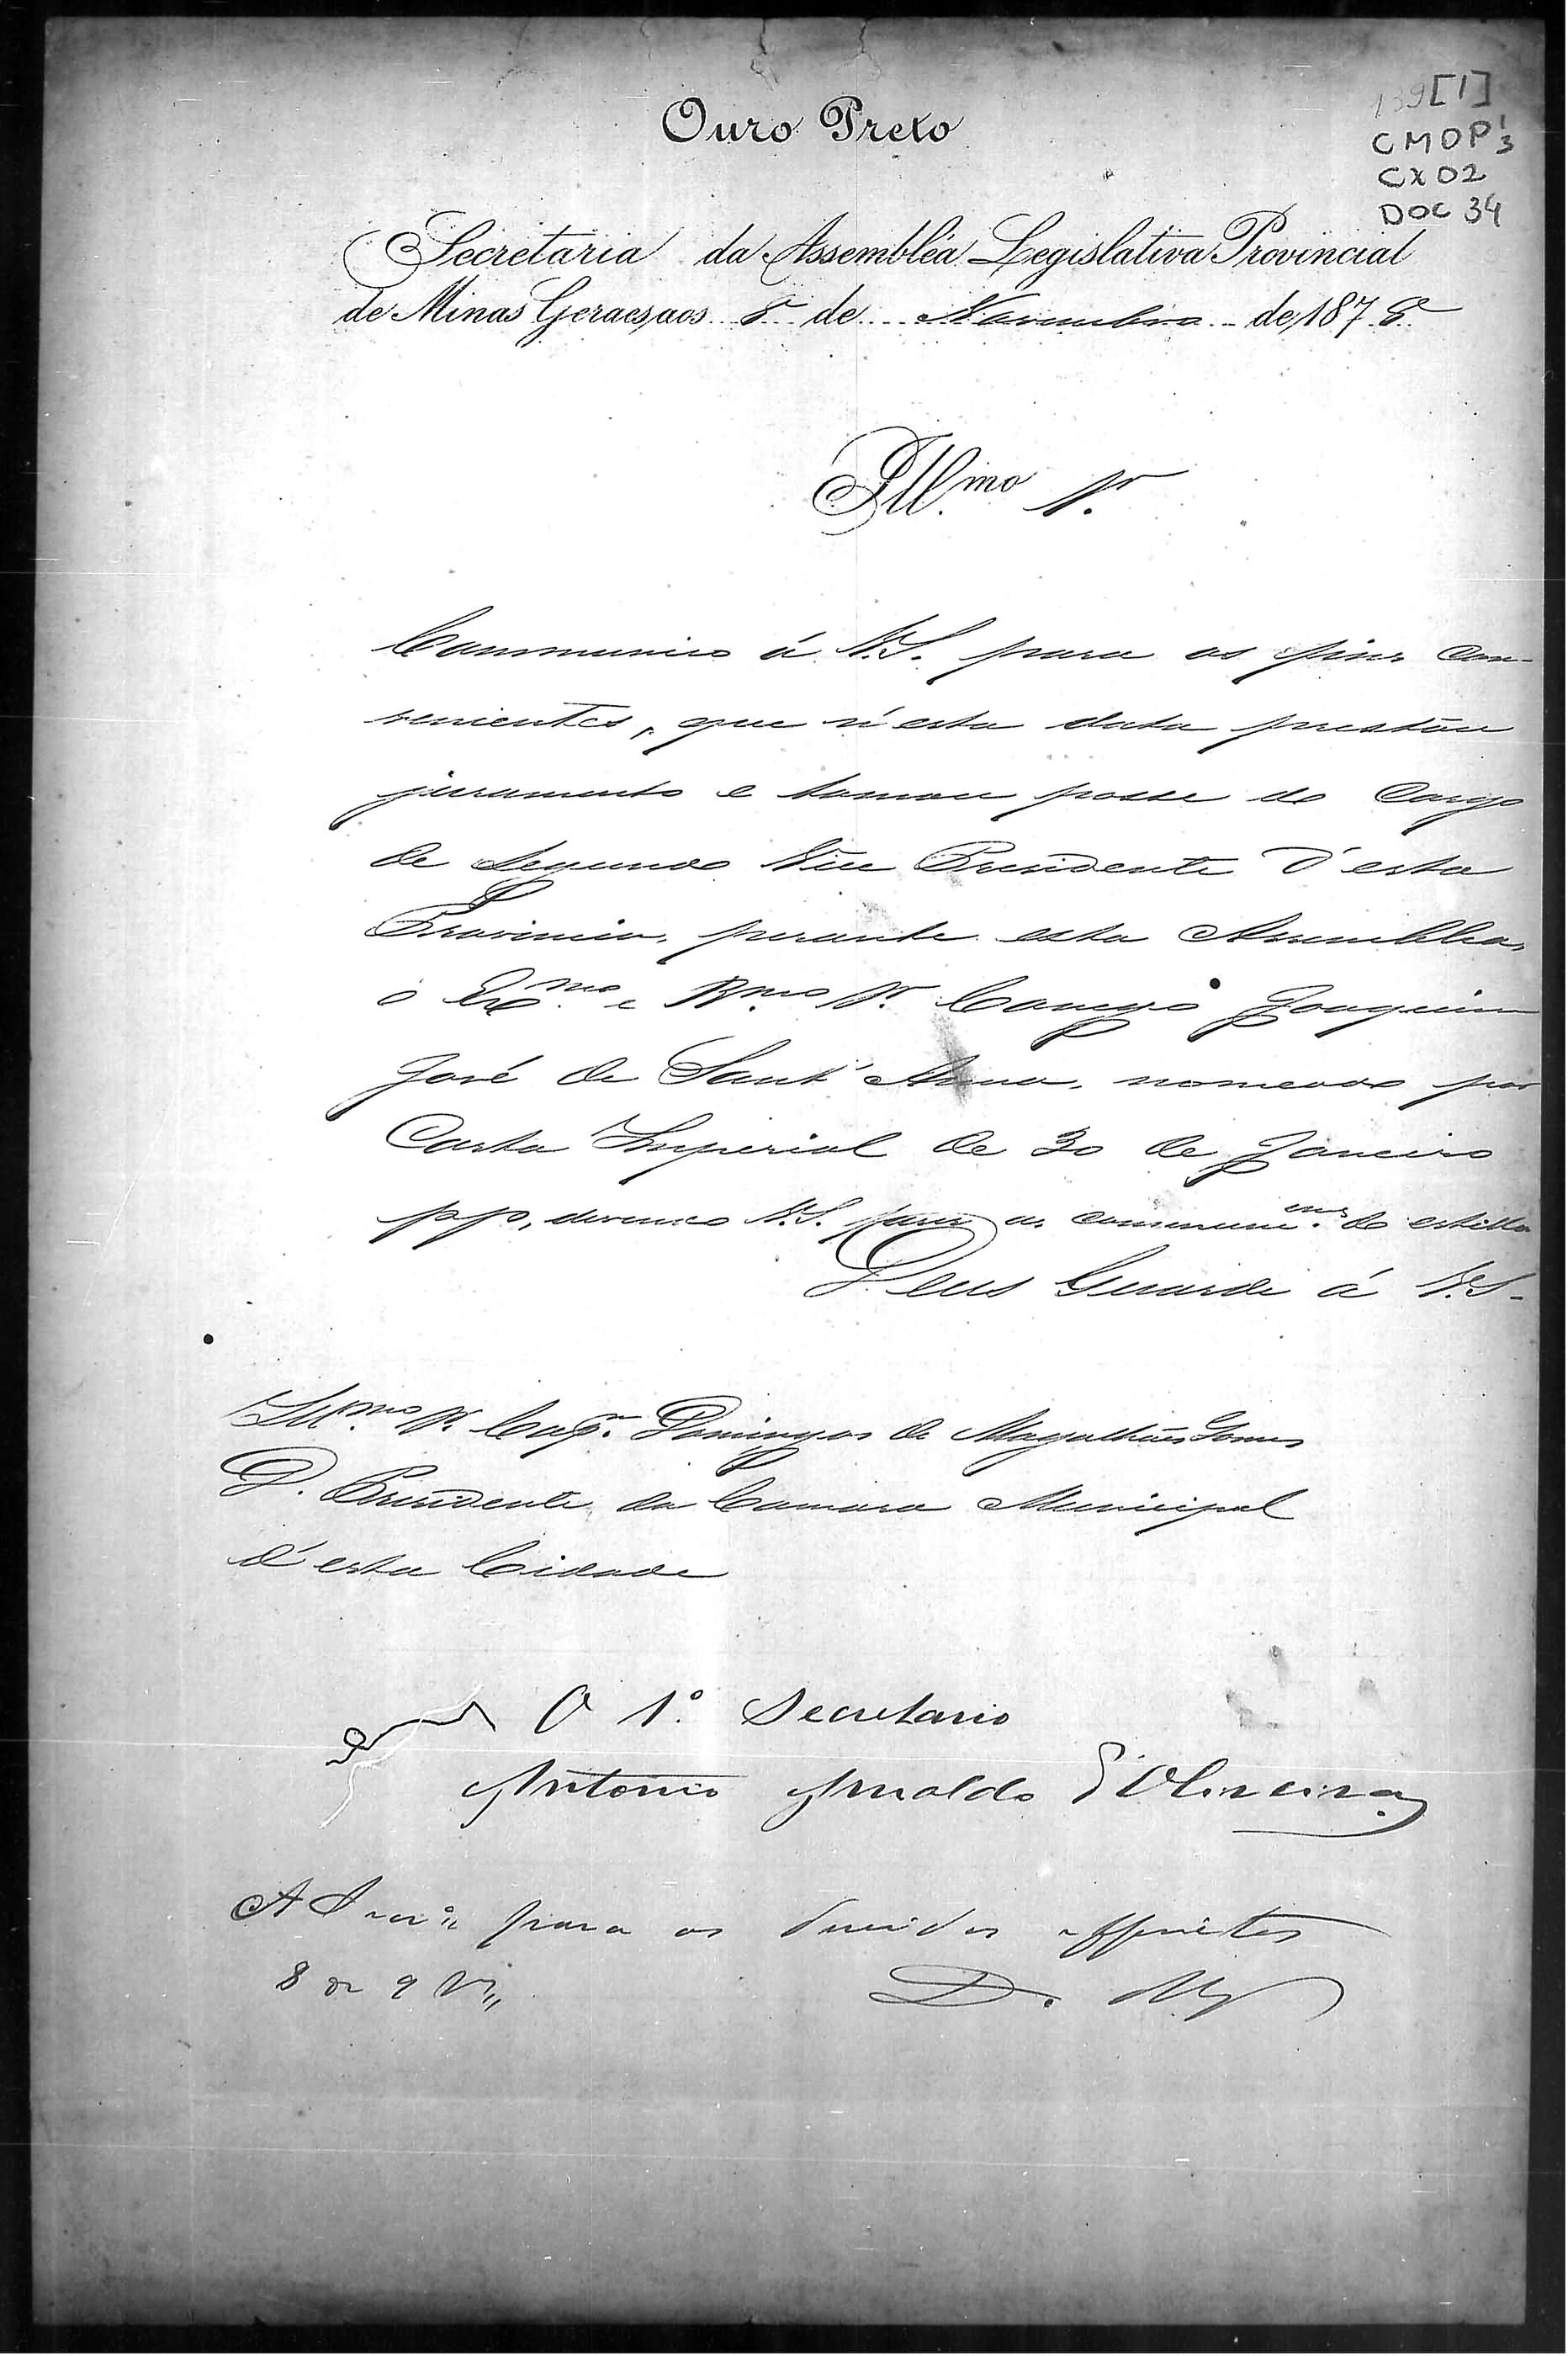 139 [1]
CMOP 1/3
CX 02
DOC 34
Ouro Preto
Secretaria da Assembléa Legislativa Provincial
de Minas Geraes, aos 8 de Novembro de 1878
Ill.mo Sr.
Communico á V.S. para os fins con-
venientes, que n'esta data prestou
juramento e tomou posse do Cargo
de Segundo Vice Presidente d'esta
Provincia, perante esta Assemblea,
o Ex.mo e R.mo Sr. Conego Joaquim
José de Sant'Anna, nomeado por
Carta Imperial de 30 de Janeiro
pp, devendo V.S. fazer as communic.ens do estillo
Deus Guarde á V.S.
Ill.mo Sr. Cap.m Domingos de Magalhães Gomes
D. Presidente da Camara Municipal
d'esta Cidade
O 1º Secretario
Antonio Arnaldo d'Oliveira
A para os devidos effeitos
8 de 9
D. Mg